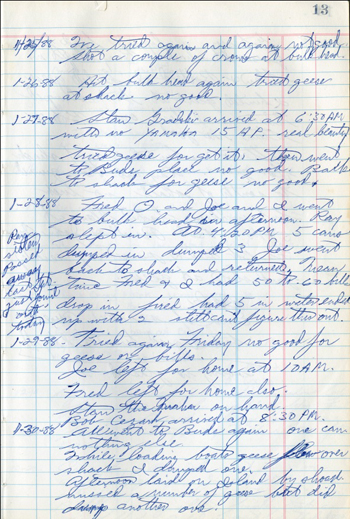 13
1/25/88 I'm tried again and again not good
shot a couple of crows at bulk head.
1-26-88 At bulk head again tried geese
at shack no good.
1-27-88 Stan arrived at 6:30 AM
with no 15 A.P. real beauty
tried geese for get it, then went
to Buds place no good. Back
to shack for geese no good.
1-28-88 Fred O and Joe and I went
to bulk head in afternoon. Ray
slept in. At 4:00 PM 5 cans
dumped in dumped 3 Joe went
back to shack and returned,
time Fred & I had 50 to 60 bills
drop in fired had 5 in water ended
up with 2 still can't figure this out.
Ray's
passed
away
last
just
out
today
1-29-88. Tried again Friday no good for
geese or bills.
Joe left for home at 10 AM.
Fred left for home also.
Stan the on hand.
Bob arrived at 8:30 PM.
1-30-88 All went to Buds again one can
nothing else
While loading boats geese flew over
shack I dumped one.
Afternoon laid on Island by shack
missed a number of geese but did
dump another one.